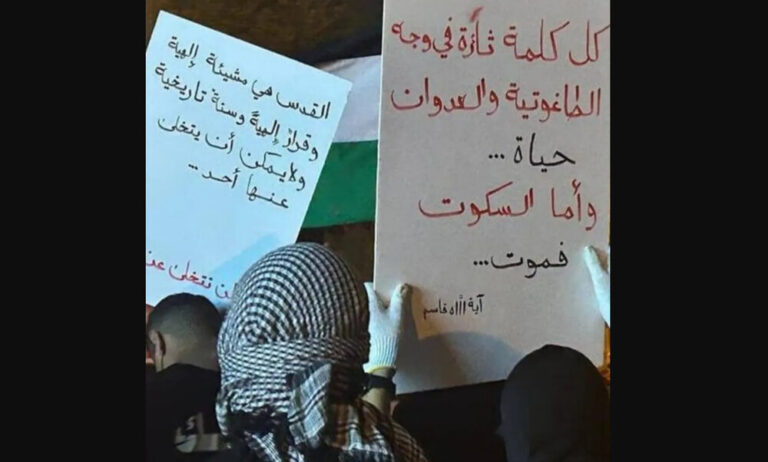 كل كلمة ثائرة في وجه
الطاغوتية والعدوان
حياة ...
وأما السكوت
فموت ...
آية الله قاسم
القدس هي مشيئة إلهية
وقرار إلهية وسنة تاريخية
ولا يمكن أن يتخلى
عنها أحد ..
لن نتخلى عن